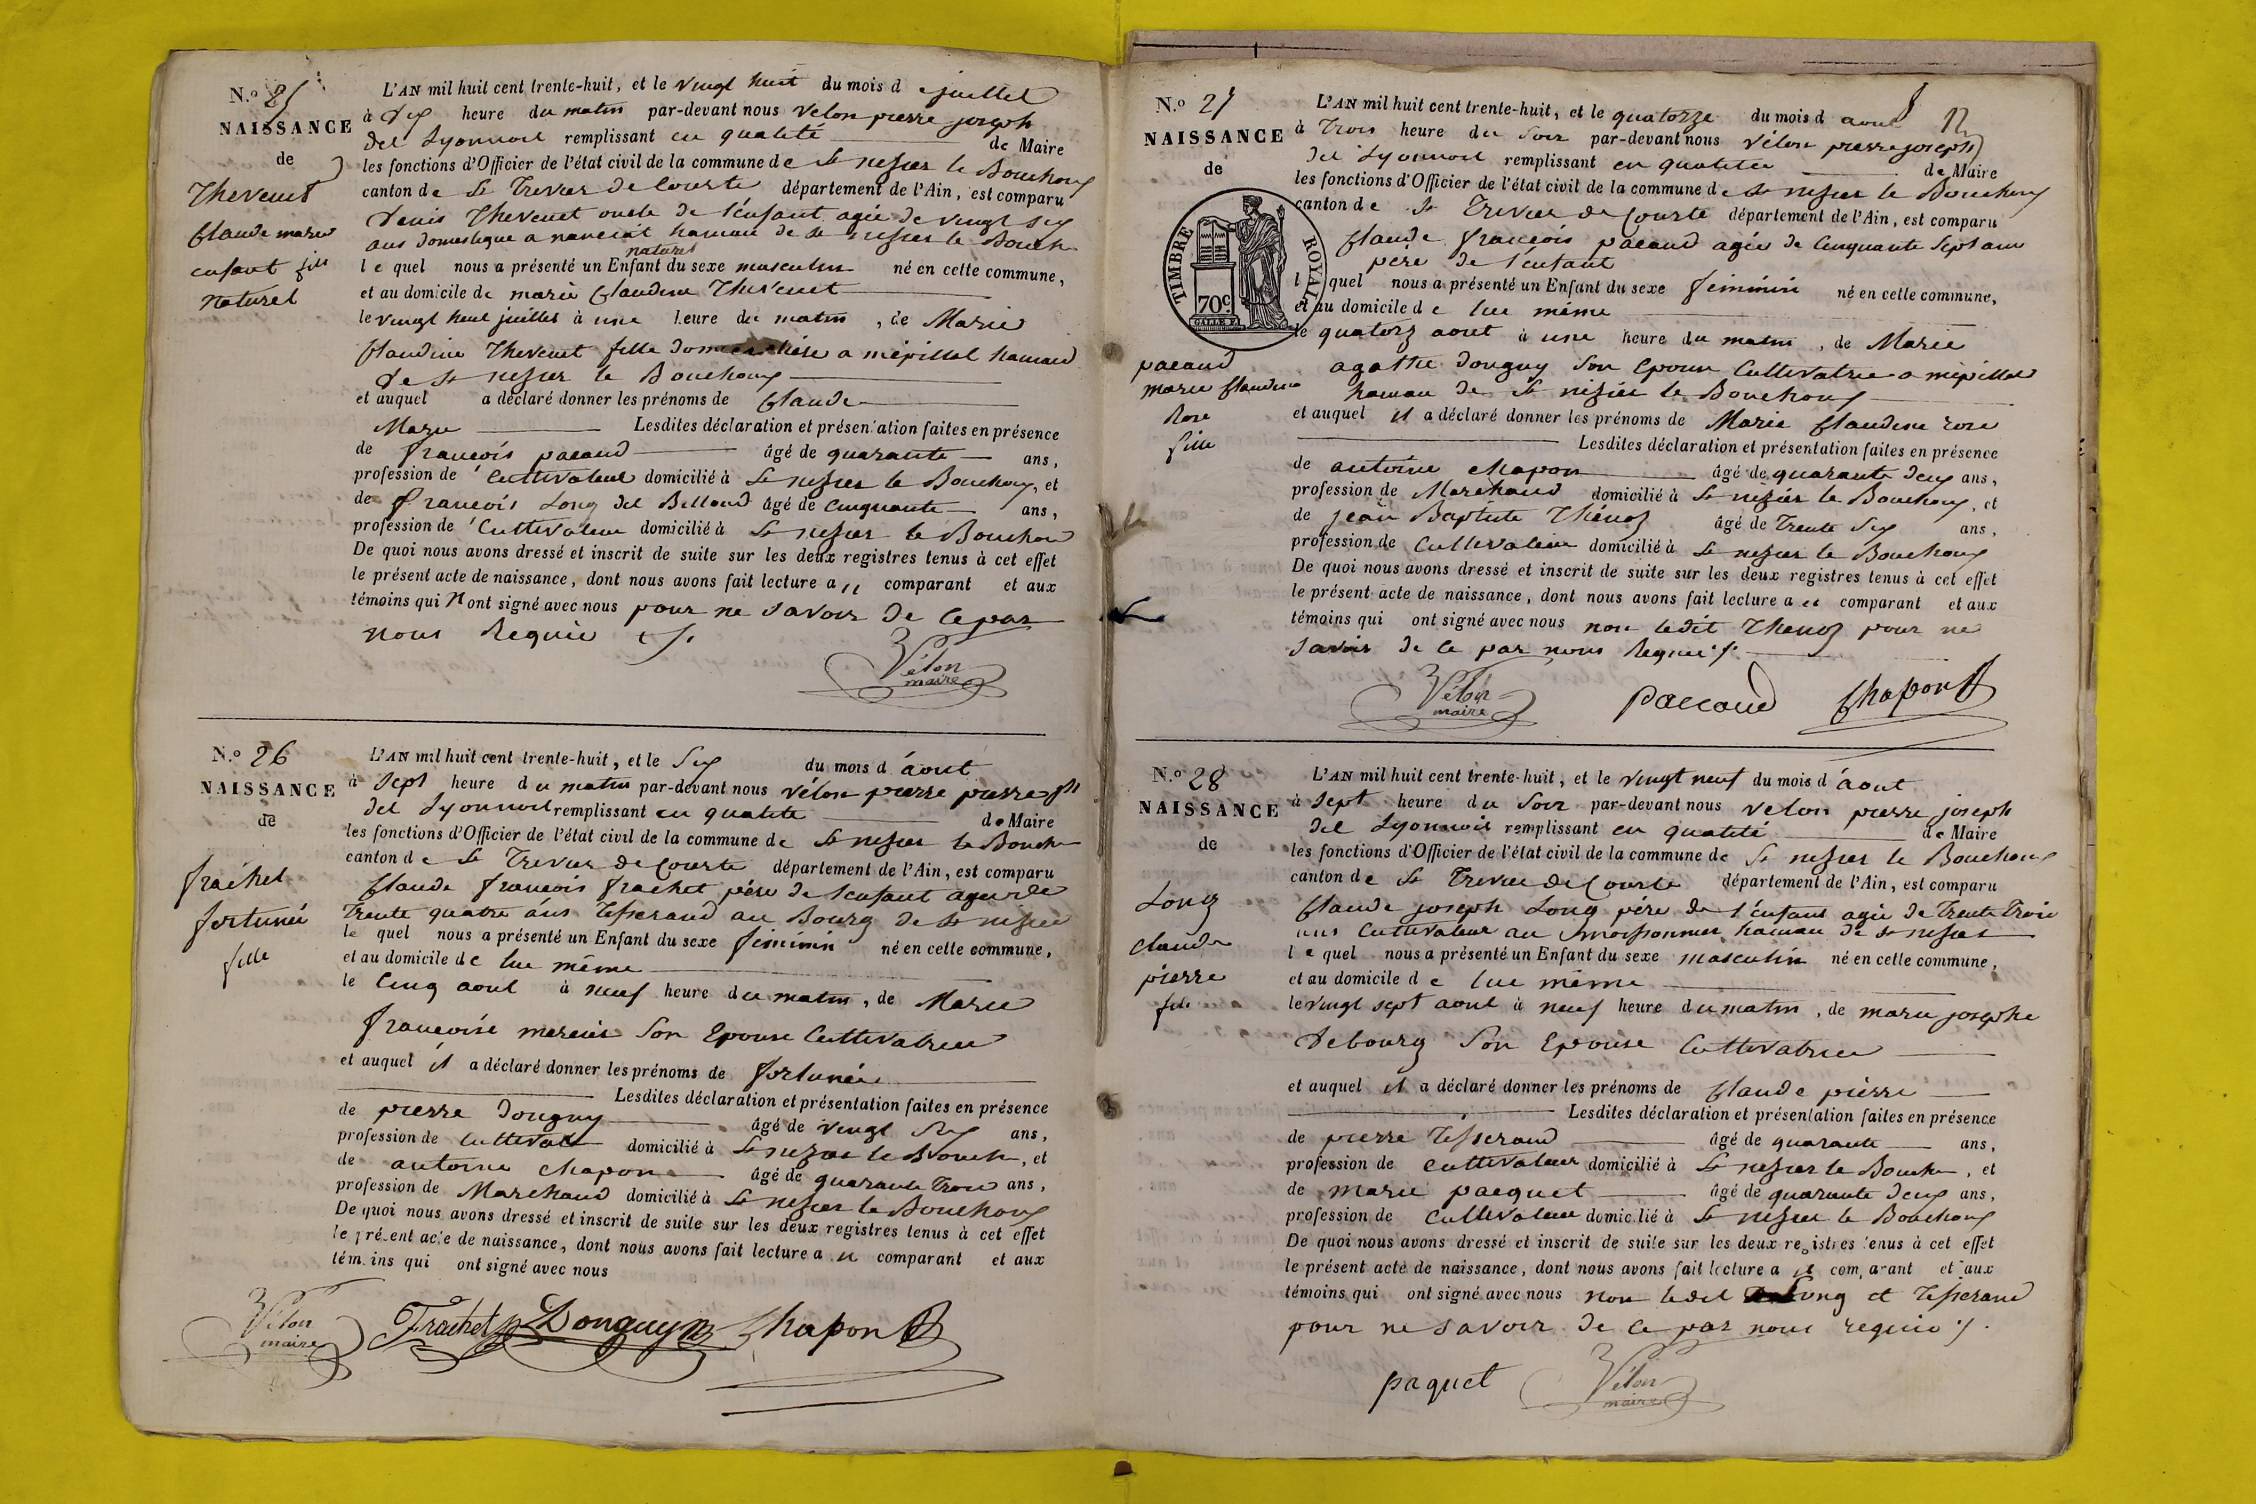 N.o 25
NAISSANCE
de
Thevenet
Claude marie
enfant fils
naturel
L'AN mil huit cent trente-huit, et le vingt huit du mois d e juillet
à dix heure du matin par-devant nous Vélon pierre joseph
del Lyonnoil remplissant en qualité de Maire
les fonctions d'Officier de l'état civil de la commune de St nesier le Bouchoux
canton de St Trevier de Courte département de l'Ain, est comparu
denis Thevenet oncle de l'enfant agée de vingt six
ans domestique a hameau de St nesier le Bouch
naturel
le quel nous a présenté un Enfant du sexe masculin né en cette commune,
et au domicile de marie Claudine Thevenet
le vingt huit juillet à une heure du matin, de Marie
Claudine Thevenet fille a mépillat hameau
de St nesier le Bouchoux
et auquel a déclaré donner les prénoms de Claude
Marie Lesdites déclaration et présentation faites en présence
de francois pacaud âgé de quarante ans,
profession de Cultivateur domicilié à St nesier le Bouchoux, et
de francois Long del Billoud âgé de Cinquante ans,
profession de Cultivateur domicilié à St nesier le Bouchou
De quoi nous avons dressé et inscrit de suite sur les deux registres tenus à cet effet
le présent acte de naissance, dont nous avons fait lecture a u comparant et aux
témoins qui n ont signé avec nous pour ne savoir de ce par
nous Requie
Vélon
maire
N.o 26
NAISSANCE
de
frachet
fortunée
fille
L'AN mil huit cent trente-huit, et le Six du mois d'août
à sept heure du matin par-devant nous vélon pierre pierre jph
del Lyonnoil remplissant en qualité de Maire
les fonctions d'Officier de l'état civil de la commune de St nesier le Bouch
canton de St Trevier de Courte département de l'Ain, est comparu
Claude francois frachet père de l'enfant agée de
Trente quatre ans Tesserand au Bourg de St nesier
le quel nous a présenté un Enfant du sexe féminin né en cette commune,
et au domicile de lui même
le Cinq aout à neuf heure du matin, de Marie
francoise mercier Son Epouse Cultivatrice
et auquel il a déclaré donner les prénoms de fortunée
Lesdites déclaration et présentation faites en présence
de pierre donguy âgé de vingt Six ans,
profession de Cultivat domicilié à St nezier le Bouch, et
de antoine chapon âgé de quarante Trois ans,
profession de Marchand domicilié à St nesier le Bouchoux
De quoi nous avons dressé et inscrit de suite sur les deux registres tenus à cet effet
le présent acte de naissance, dont nous avons fait lecture a u comparant et aux
témoins qui ont signé avec nous
Vélon
maire
Frachet Donguy Chapon
N.o 27
NAISSANCE
de
TIMBRE ROYAL
70c
pacaud
marie Claudine
Rose
fille
L'AN mil huit cent trente-huit, et le quatorze du mois d aout
à Trois heure du Soir par-devant nous Vélon pierre joseph
del Lyonnoil remplissant en qualitée de Maire
les fonctions d'Officier de l'état civil de la commune de St nesier le Bouchoux
canton de St Trevier de Courte département de l'Ain, est comparu
Claude francois pacaud agée de Cinquante Sept ans
père de l'enfant
l quel nous a présenté un Enfant du sexe féminin né en cette commune,
et au domicile de lui même
le quatorz aout à une heure du matin, de Marie
agathe donguy Son Epouse Cultivatrice a mépillat
hameau de St nizier le Bouchoux
et auquel il a déclaré donner les prénoms de Marie Claudine rose
Lesdites déclaration et présentation faites en présence
de antoine chapon âgé de quarante deux ans,
profession de Marchand domicilié à St nezier le Bouchoux, et
de jean Baptiste Thénoz âgé de Trente Six ans,
profession de Cultivateur domicilié à St nesier le Bouchoux
De quoi nous avons dressé et inscrit de suite sur les deux registres tenus à cet effet
le présent acte de naissance, dont nous avons fait lecture a u comparant et aux
témoins qui ont signé avec nous non ledit Thenoz pour ne
savoir de ce par nous Requis
Vélon
maire
Paccaud Chapon
N.o 28
NAISSANCE
de
Long
claude
pierre
fils
L'AN mil huit cent trente-huit, et le vingt neuf du mois d'aout
à sept heure du Soir par-devant nous vélon pierre joseph
del Lyonnoil remplissant en qualité de Maire
les fonctions d'Officier de l'état civil de la commune de St nesier le Bouchoux
canton de St Trevier de Courte département de l'Ain, est comparu
Claude joseph Long père de l'enfant agée de Trente Trois
ans Cultivateur au hameau de St nesier
le quel nous a présenté un Enfant du sexe masculin né en cette commune,
et au domicile de lui même
le vingt sept aout à neuf heure du matin, de marie josephe
Debourg Son Epouse Cultivatrice
et auquel il a déclaré donner les prénoms de Claude pierre
Lesdites déclaration et présentation faites en présence
de pierre Tesserand âgé de quarante ans,
profession de Cultivateur domicilié à St nesier le Bouch, et
de marie pacquet âgé de quarante deux ans,
profession de Cultivateur domicilié à St nesier le Bouchoux
De quoi nous avons dressé et inscrit de suite sur les deux registres tenus à cet effet
le présent acte de naissance, dont nous avons fait lecture a u comparant et aux
témoins qui ont signé avec nous non ledit Long et Tesserand
pour ne savoir de ce par nous requis
paquet
Vélon
maire